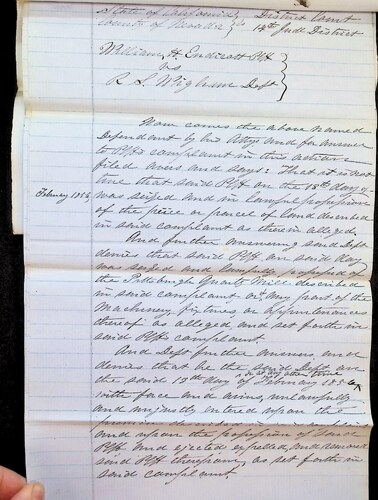 State of California } District Court
County of Nevada } ss 14th Judl. District
William H. Endicott Plff
vs
R. S. Wigham Deft
Now comes the above named
Defendant by his Attys and for answer
to Plffs complaint in this action
filed avers and says: That it is not
true that said Plff on the 18th day of
February 1856
was seized and in lawful possession
of the piece or parcel of land described
in said complaint as therein alleged.
And further answering said Deft
denies that said Plff on said day
was seized and lawfully possessed of
the Pittsburgh Quartz Mill described
in said complaint or any part of the
Machinery fixtures or appurtenances
thereof as alleged, and set forth in
said Plffs complaint.
And Deft further answers, and
denies that he the said Deft on
or at any other time
the said 18th day of February 1856
with force and arms, unlawfully
and unjustly entered upon the
and upon the possession of said
Plff and ejected expelled, and removed
said Plff therefrom, as set forth in
said complaint.